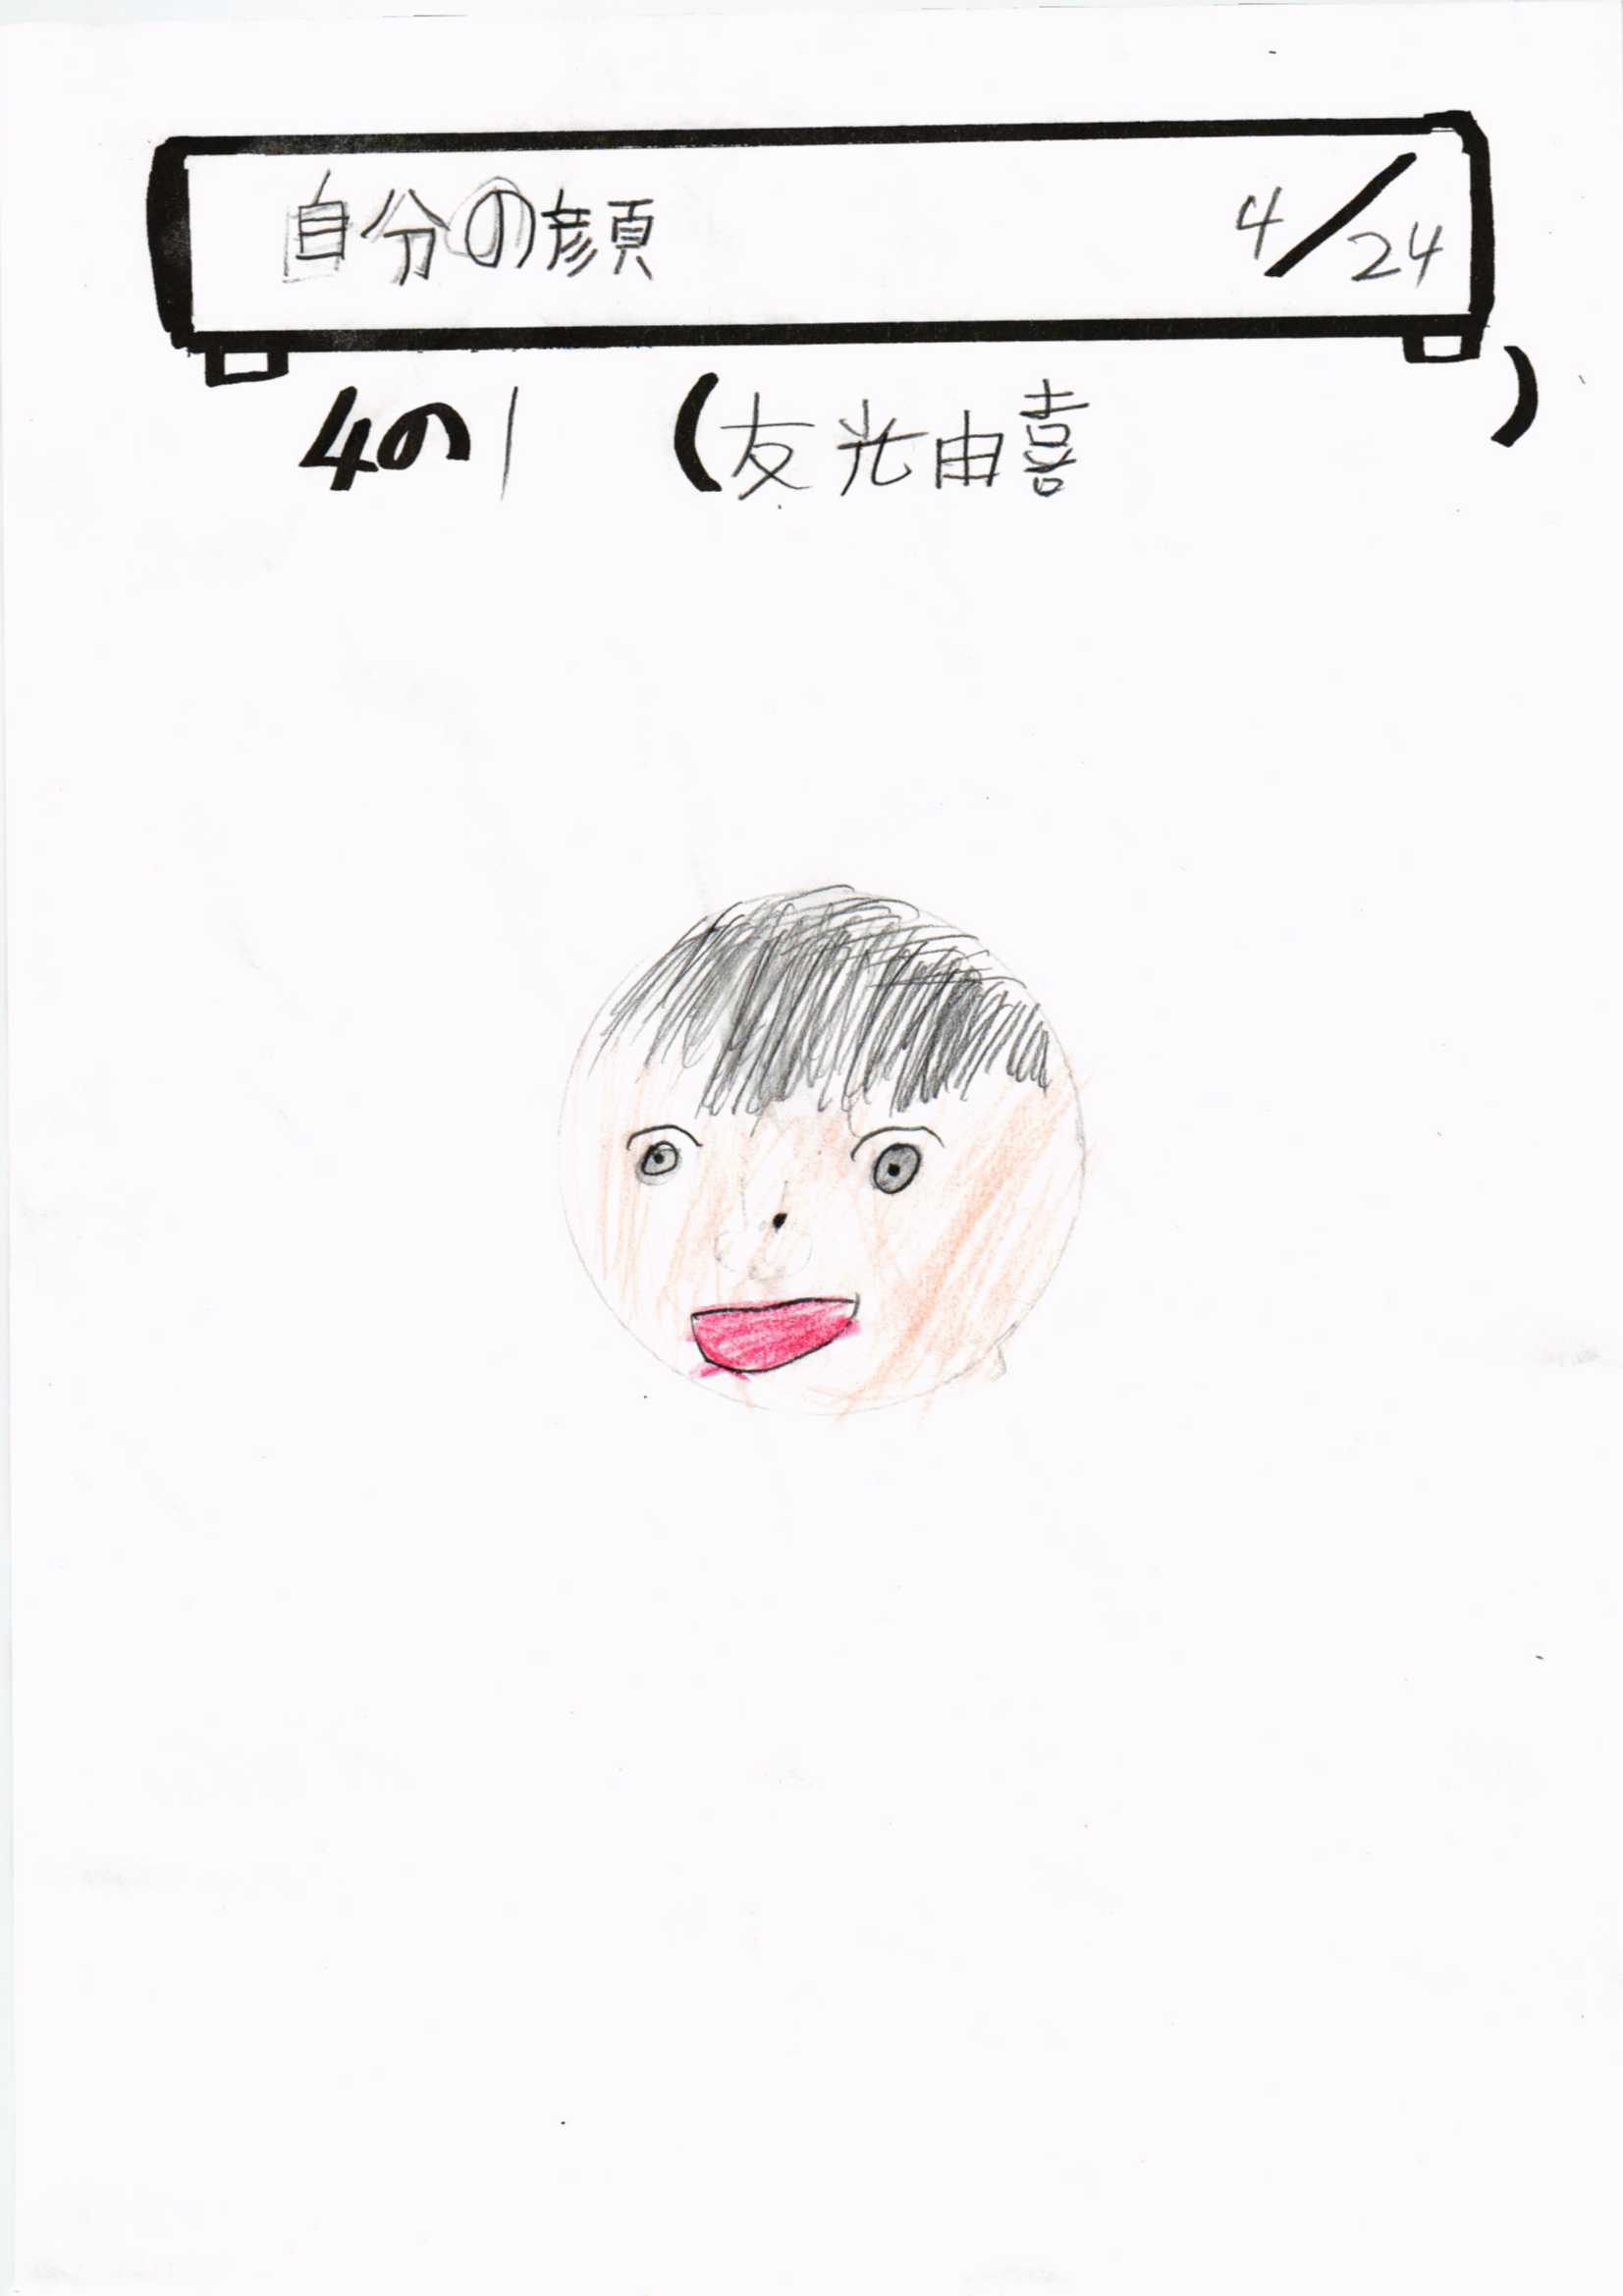 自分の顔 4/24
4の1 (友光由喜)